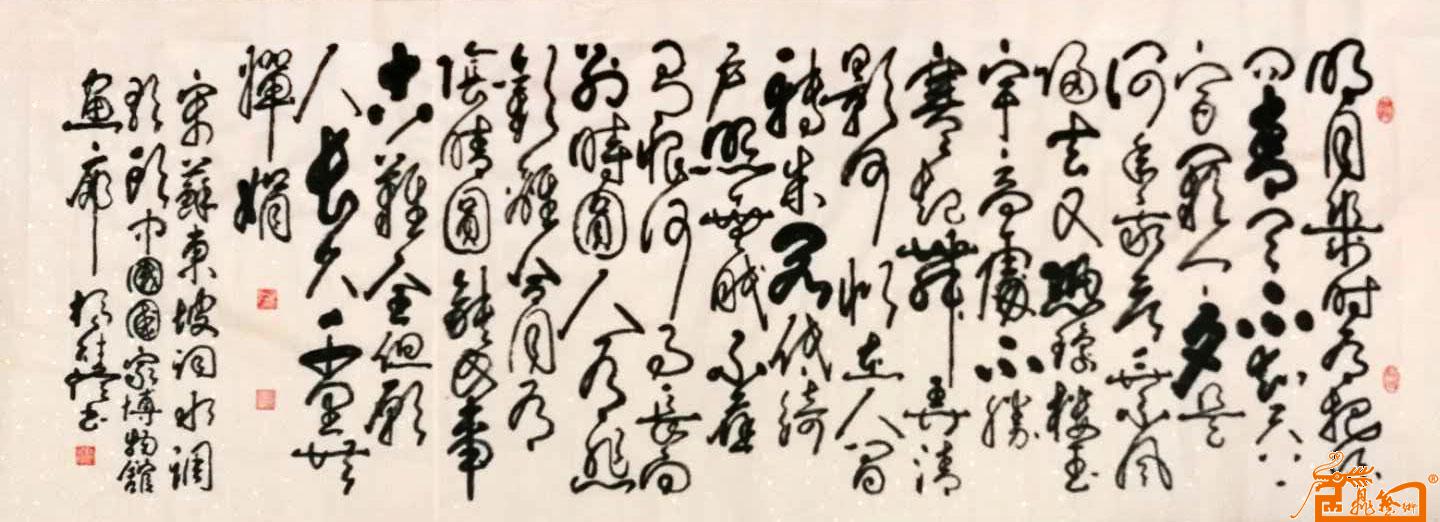 明月幾时有把酒
问青天不知天上
宫闕今夕是
何年我欲乘風
歸去又恐瓊樓玉
宇高處不勝
寒起舞弄清
影何似在人間
轉朱閣低綺
戶照無眠不應
有恨何事長向
別時圓人有悲
歡離合月有
陰晴圓缺此事
古難全但願
人長久千里共
嬋娟
宋蘇東坡詞水調
歌頭中國國家博物館
畫廊